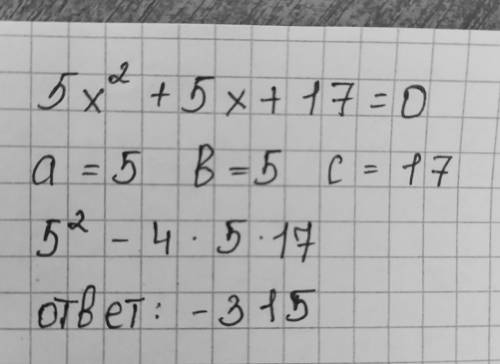 5x² + 5x + 17 = 0
a = 5 b = 5 c = 17
5² - 4 · 5 · 17
ответ: - 315